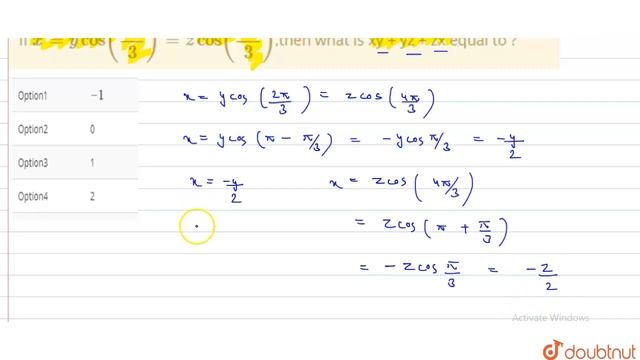 If x = y cos( /3) = z cos( /3), then what is xy + yz + zx equal to ?
Option1 −1
Option2 0
Option3 1
Option4 2
x = y cos (2π/3) = z cos (4π/3)
x = y cos (π − π/3) = − y cos π/3 = −y/2
x = −y/2 x = z cos (4π/3)
= z cos (π + π/3)
= − z cos π/3 = − z/2
Activate Windows
doubtnut